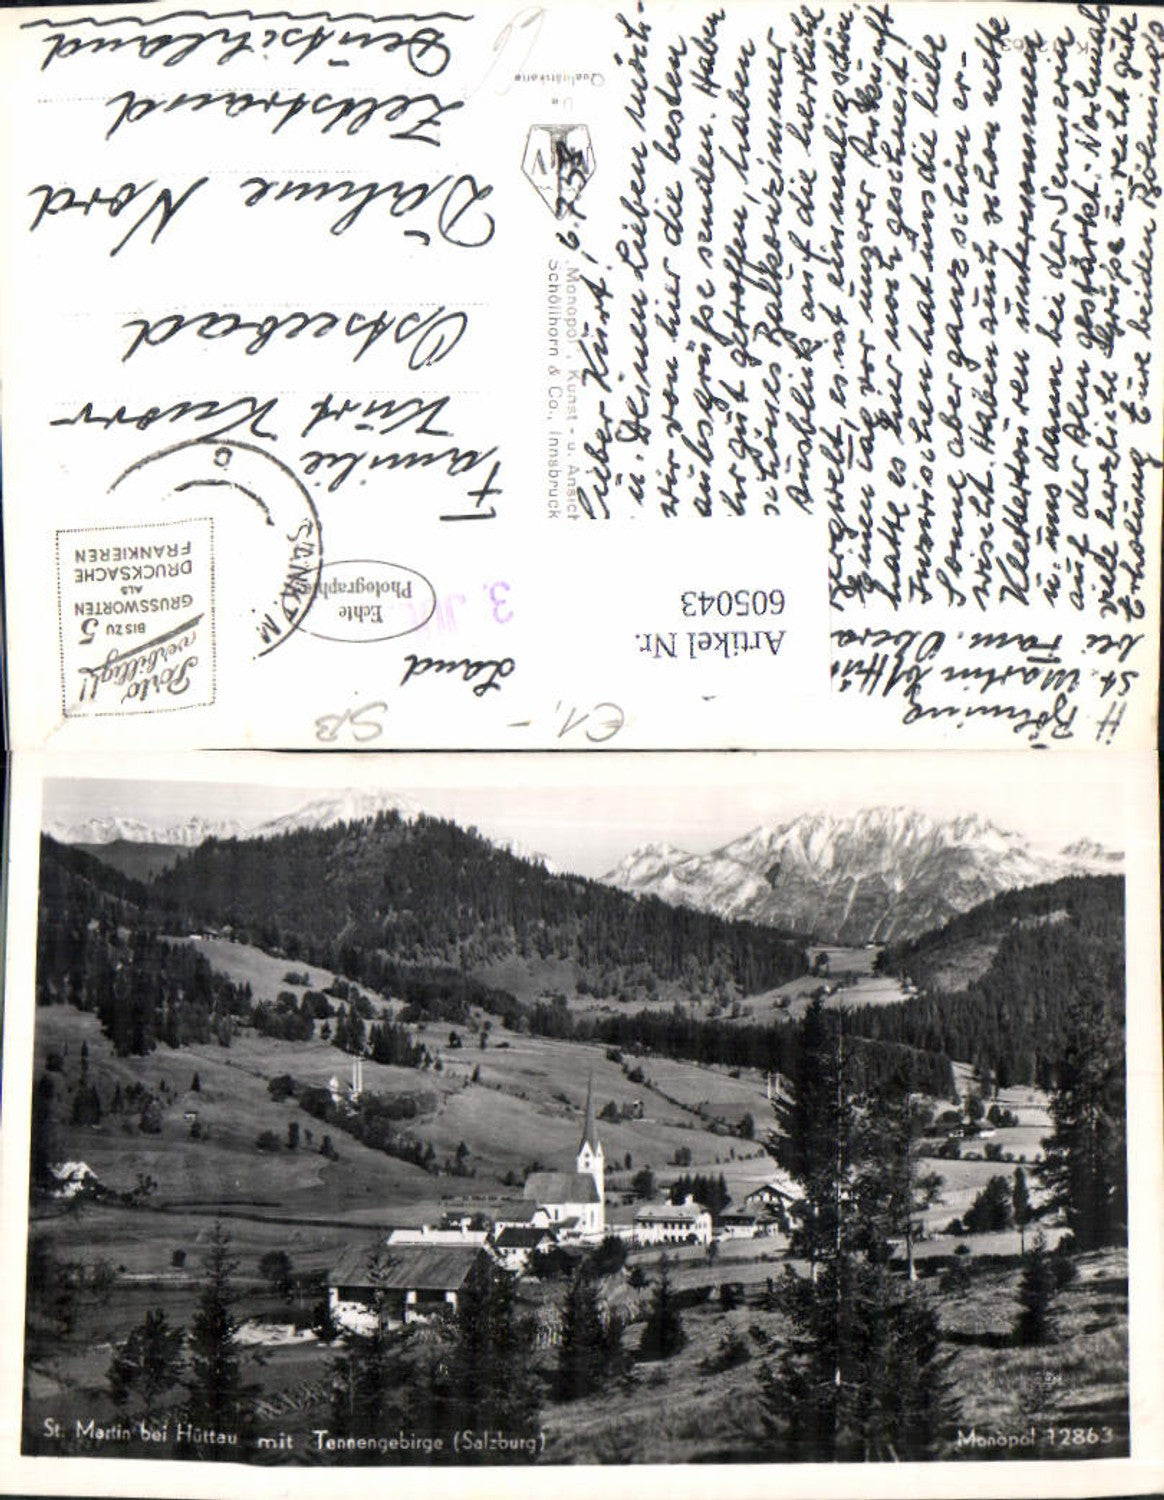 Lieber Kurt! 6.7.
u. Deinen Lieben möch-
wir von hier die besten
aubsgrüße senden. Haben
hr gut getroffen, haben
schönes Balkonzimmer
Ausblick auf die herrliche
Bergwelt, es ist einmalig schön.
Einen Tag vor unserer Ankunft
hatte es hier noch geschneit!
Inzwischen hat uns die liebe
Sonne aber ganz schön er-
wischt. Haben auch schon nette
Klettertouren unternommen
u. uns dann bei der Sennerin
auf der Alm gestärkt. Nochmals
viele herzliche Grüße u. recht gute
Erholung Eure beiden Böhmings
H. Böhming
St. Martin b/Hüt
bei Fam.
Familie
Kurt Knorr
Ostseebad
Dahme Nord
Zeltstrand
Deutschland
Land
„Monopol“, Kunst- u. Ansicht
Schöllhorn & Co., Innsbruck
Qualitätskarte
Echte
Photographie
Porto
verbilligt!
BIS ZU 5
GRUSSWORTEN
ALS
DRUCKSACHE
FRANKIEREN
Artikel Nr.
605043
€1,-
SB
St. Martin bei Hüttau mit Tennengebirge (Salzburg)
Monopol 12863